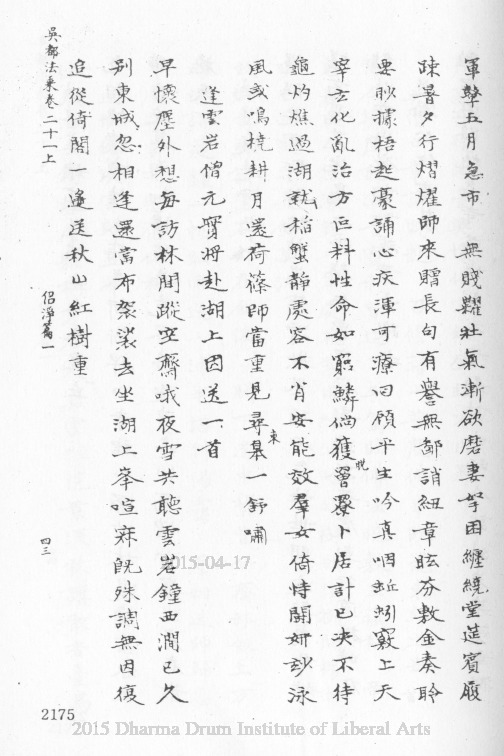 軍擊五月急市 無賤糶壯氣漸欲磨妻孥困纏繞堂莚賓履
疎晷夕行熠燿師來贈長句有譽無鄙誚紐章眩芬敷金奏聆
要眇據梧起豪誦心疾渾可療回顧平生吟真呬蚯蚓竅上天
宰玄化亂治方叵料性命如窮鱗倘獲脫罾罩卜居計已決不待
龜灼燋過湖就稻蟹靜處容不肖安能效羣女倚恃鬬妍玅泳
風或鳴橈耕月還荷蓧師當重見尋東皋一舒嘯
逢雲岩僧元寶將赴湖上因送一首
早懷塵外想每訪林間蹤空齋哦夜雪共聽雲岩鐘西澗已久
別東城忽相逢還當布袈裟去坐湖上峯喧寂既殊調無因復
追從倚閣一遙送秋山紅樹重
吳都法乘卷二十一上 侶淨篇一 四三
2175
2015-04-17
2015 Dharma Drum Institute of Liberal Arts